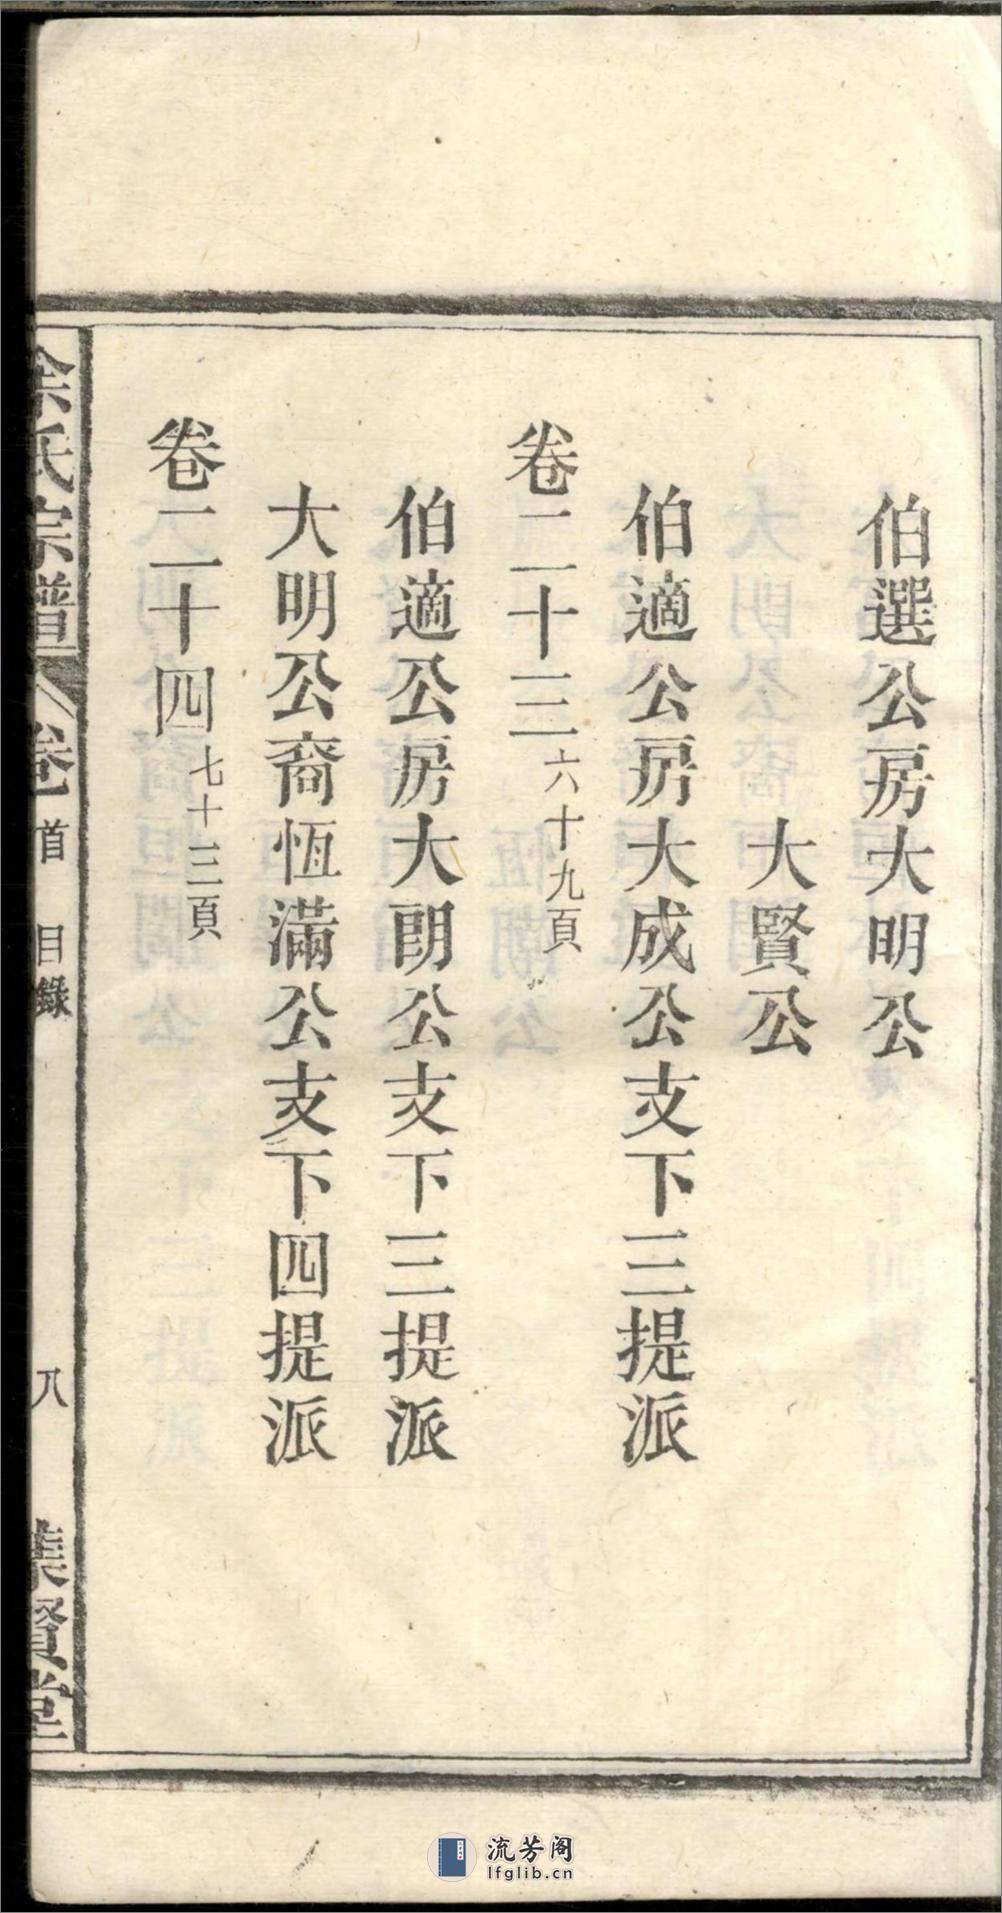 伯選公房大明公
大賢公
伯適公房大成公支下三提派
卷二十三六十九頁
伯適公房大朗公支下三提派
大明公裔恆滿公支下四提派
卷二十四七十三頁
氏宗譜 卷首 目錄 八 集賢堂
流芳阁
lfglib.cn